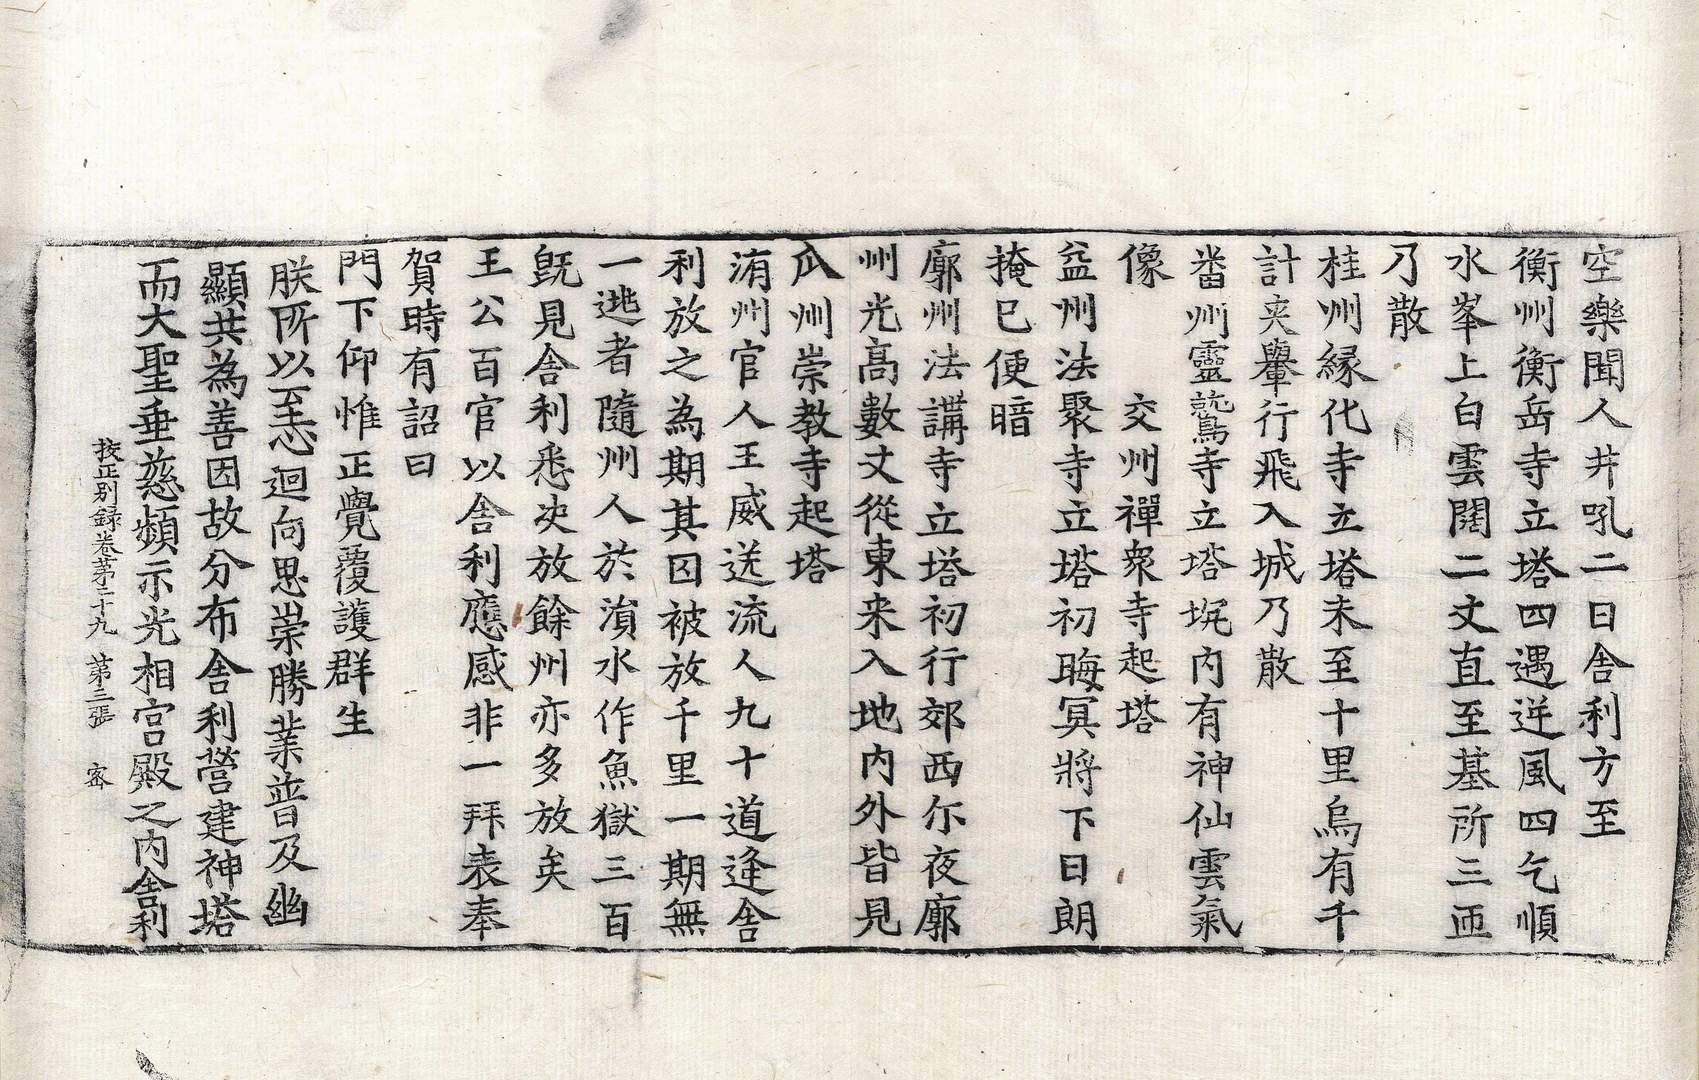 空樂聞人井吼二日舎利方至
衡州衡岳寺立塔四遇逆風四乞順
水峯上白雲闊二丈直至墓所三匝
乃散
桂州縁化寺立塔未至十里烏有千
計夾轝行飛入城乃散
番州靈鷲寺立塔坑内有神仙雲氣
像　　交州禪衆寺起塔
益州法聚寺立塔初晦冥將下日朗
掩已便暗
廓州法講寺立塔初行郊西尓夜廓
州光高數丈從東来入地内外皆見
瓜州崇教寺起塔
洧州官人王威送流人九十道逢舎
利放之為期其囚被放千里一期無
一逃者隨州人於溳水作魚獄三百
旣見舎利悉决放餘州亦多放矣
王公百官以舎利應感非一拜表奉
賀時有詔曰
門下仰惟正覺覆護群生
朕所以至心迴向思崇勝業普及幽
顯共為善因故分布舎利營建神塔
而大聖垂慈頻示光相宮殿之内舎利
挍正别録卷苐二十九　第三張　密